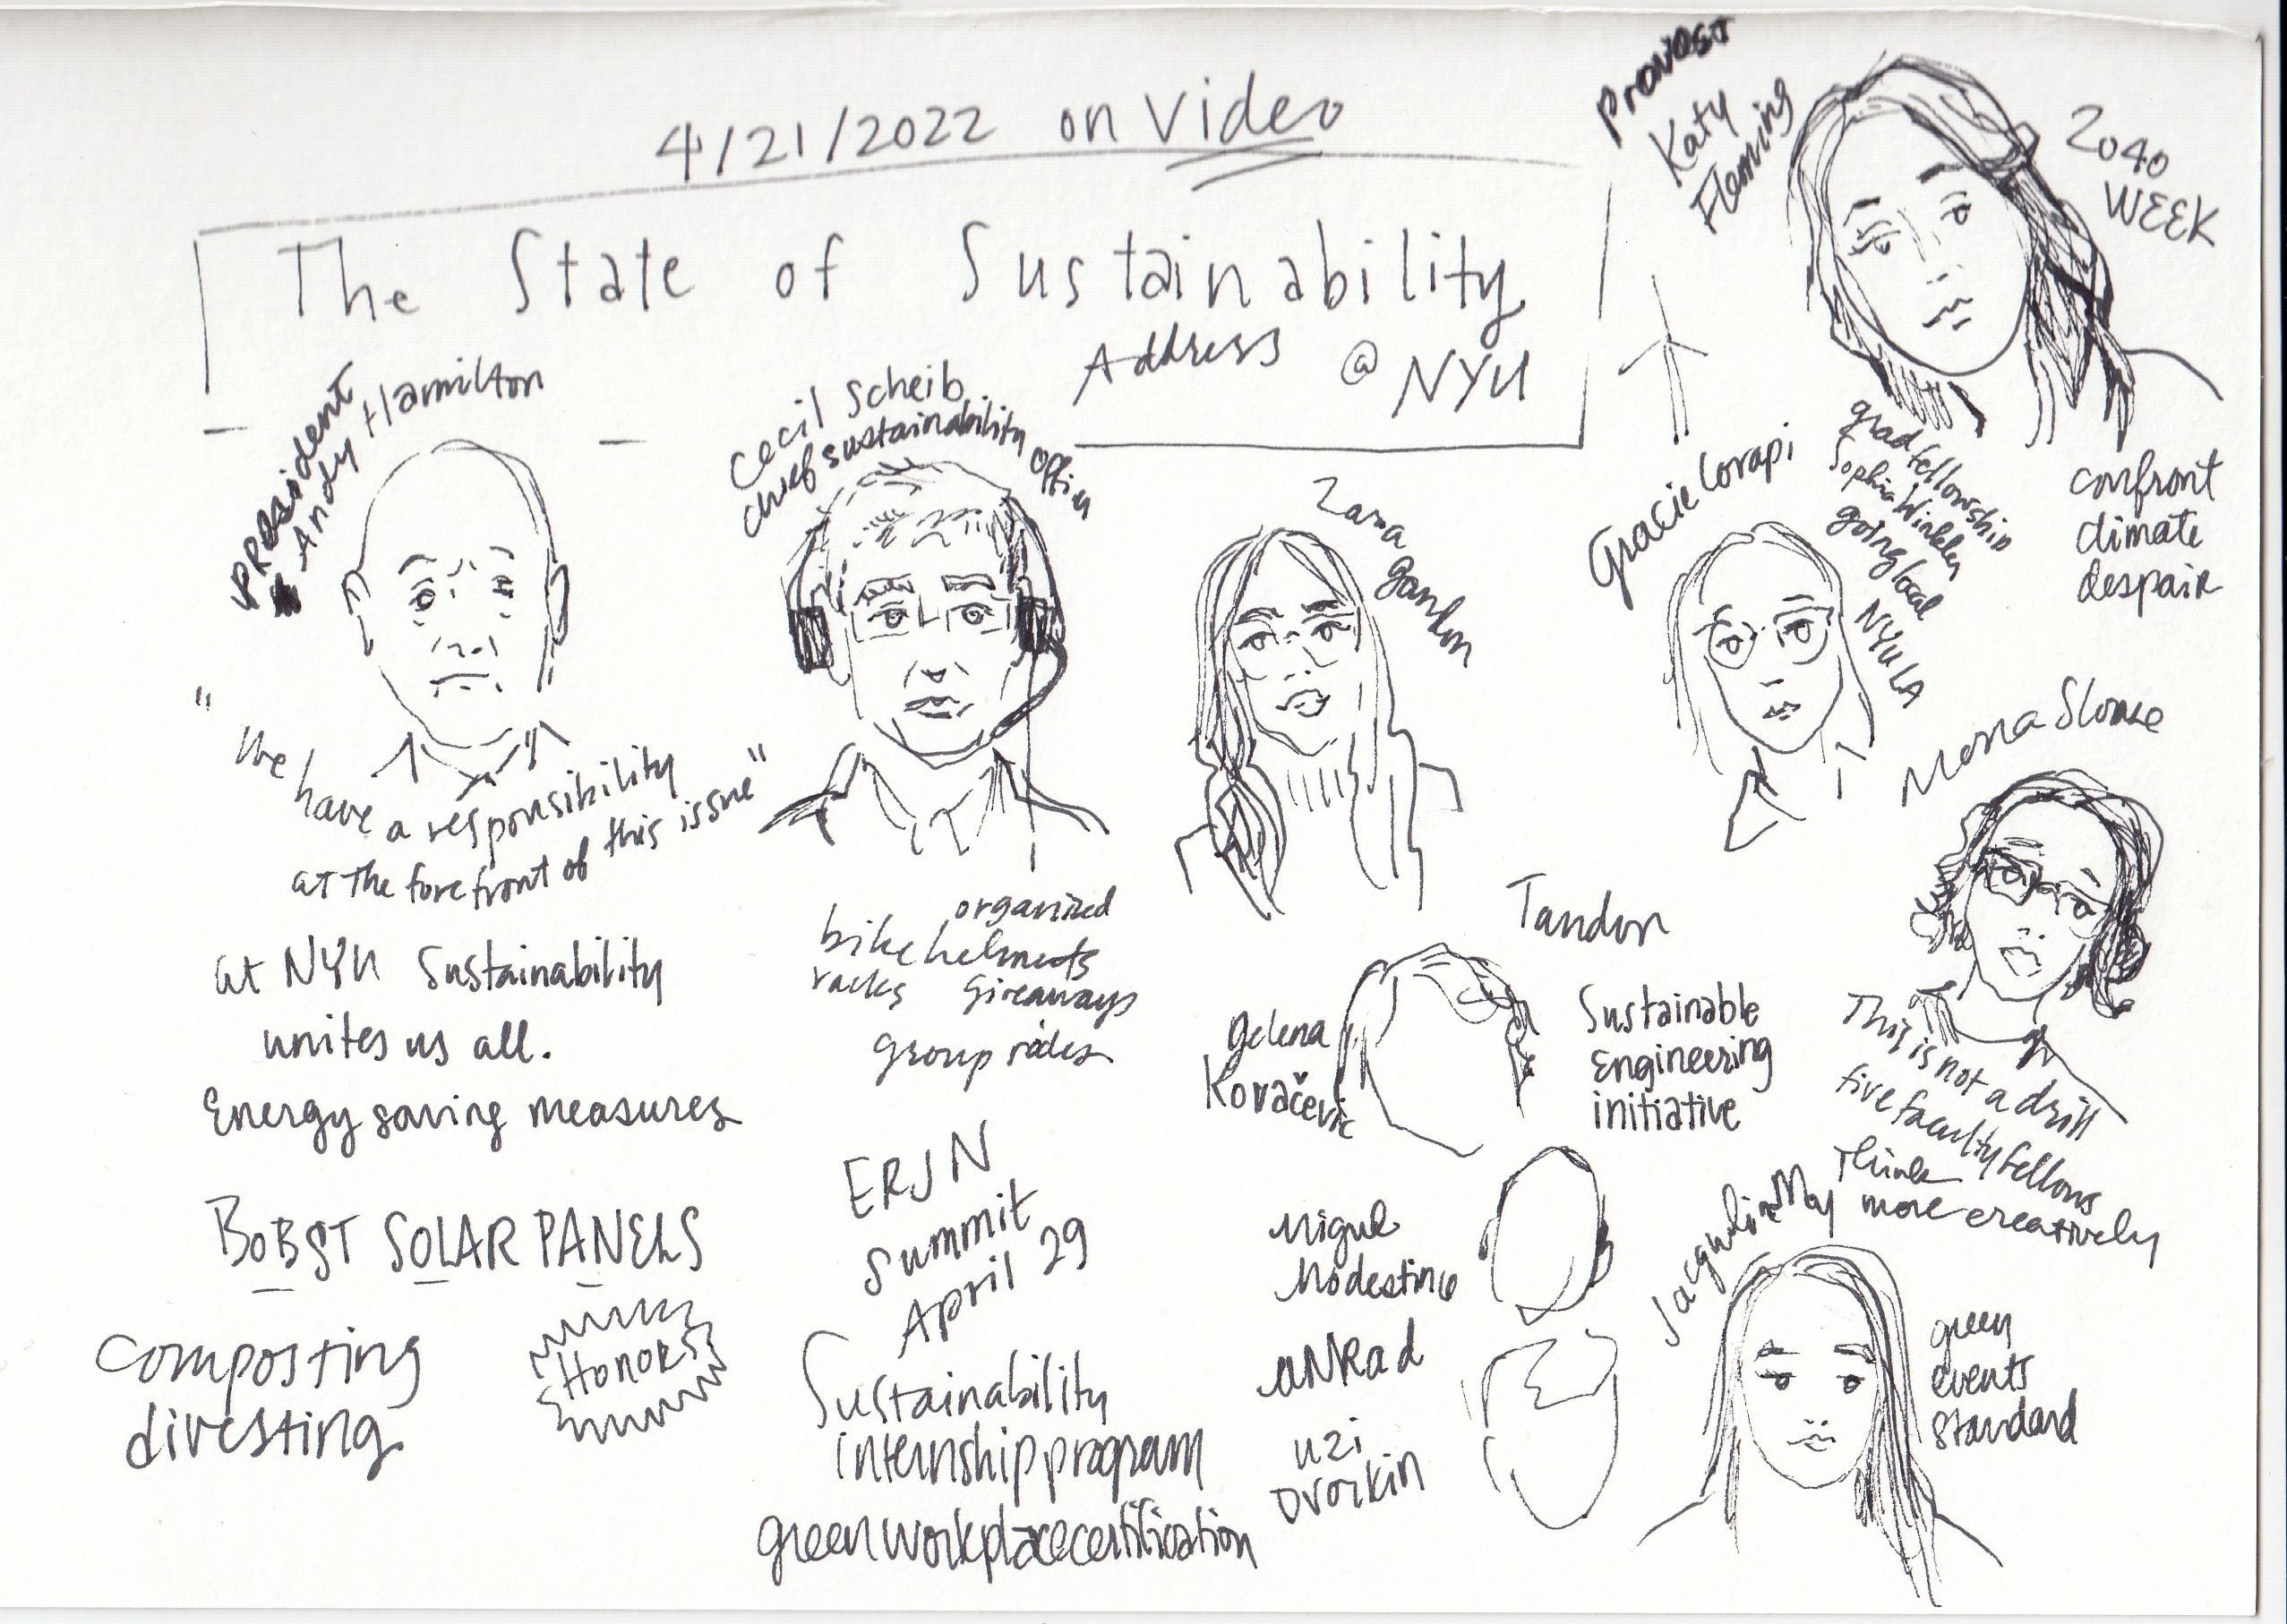 4/21/2022 on Video
The State of Sustainability
Address @ NYU
Provost
Katy
Fleming
2040
WEEK
confront
climate
despair
President
Andy Hamilton
"We
have a responsibility
at the forefront of this issue"
at NYU Sustainability
unites us all.
Energy saving measures
BOBST SOLAR PANELS
composting
divesting
Honors
Cecil Scheib
chief sustainability officer
organized
bike helmets
racks giveaways
group rides
ERJN
Summit
April 29
Sustainability
internship program
green workplace certification
Zara
Gracie Corapi
grad fellowship
Sophia Winkler
going local
NYU LA
Mona Sloane
This is not a drill
five faculty fellows
Think
more creatively
Tandon
Jelena
Kovačević
Sustainable
Engineering
initiative
Miguel
Modestino
Dvorkin
Jacqueline May
green
events
standard